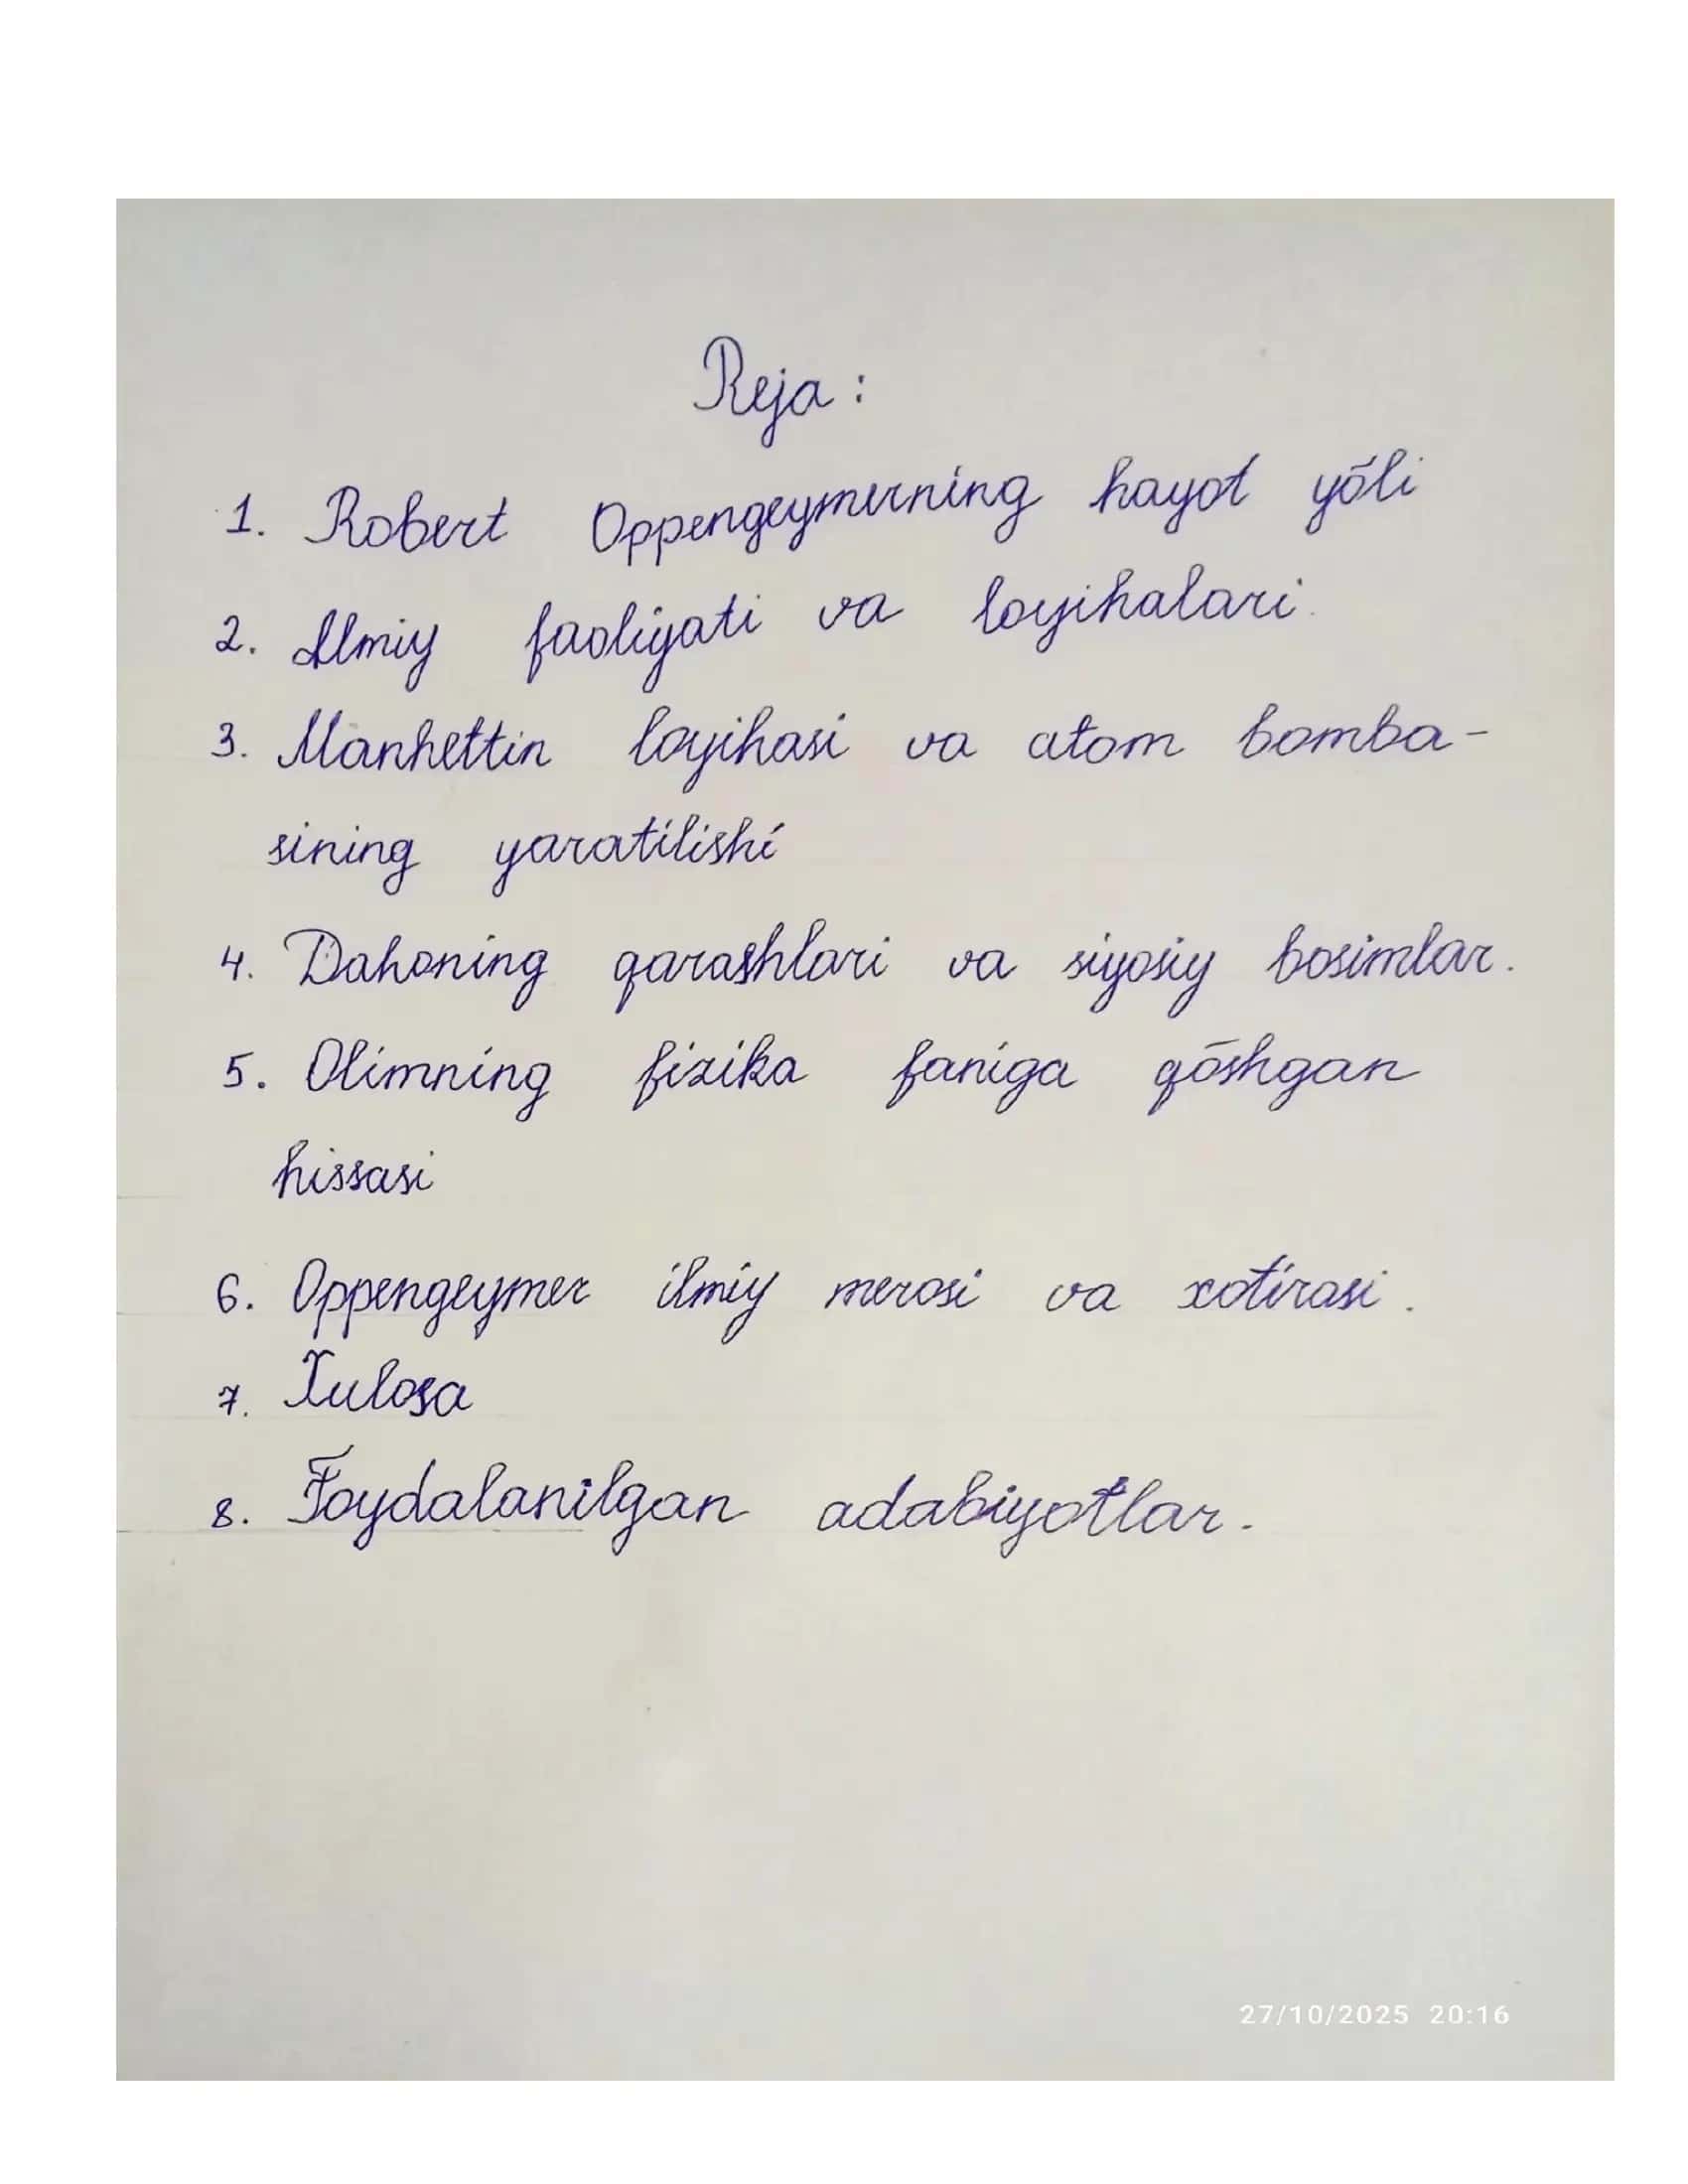 Reja :
1. Robert Oppengeymerning hayot yōli
2. Ilmiy faoliyati va loyihalari.
3. Manhettin loyihasi va atom bomba-
sining yaratilishi
4. Dahoning qarashlari va siyosiy bosimlar.
5. Olimning fizika faniga qōshgan
hissasi
6. Oppengeymer ilmiy merosi va xotirasi.
7. Xulosa
8. Foydalanilgan adabiyotlar.
27/10/2025 20:16